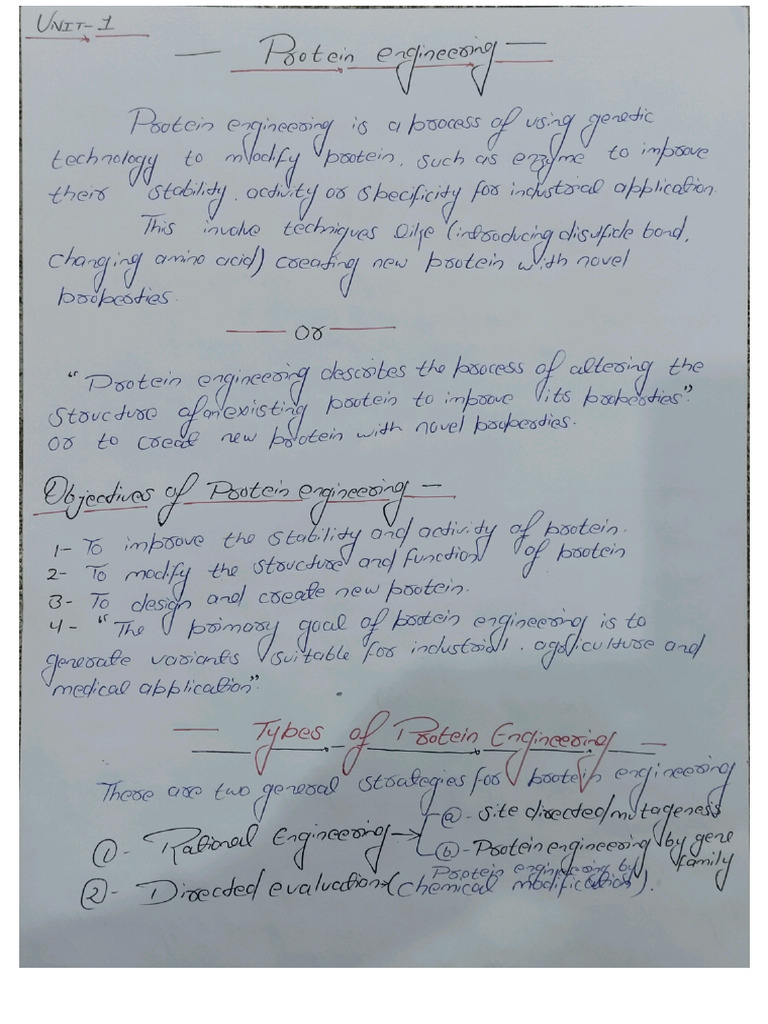 UNIT-1
— Protein engineering —
Protein engineering is a process of using genetic
technology to modify protein, such as enzyme to improve
their stability, activity or specificity for industrial application.
This involve techniques like (introducing disulfide bond,
changing amino acid) creating new protein with novel
properties.
— Or —
"Protein engineering describes the process of altering the
structure of an existing protein to improve its properties"
or to creat new protein with novel properties.
Objectives of Protein engineering —
1- To improve the stability and activity of protein.
2- To modify the structure and function of protein
3- To design and create new protein.
4- "The primary goal of protein engineering is to
generate variants suitable for industrial, agriculture and
medical application".
— Types of Protein Engineering —
There are two general strategies for protein engineering
① - Rational Engineering → ⓐ - site directed mutageness
ⓑ - Protein engineering by gene family
② - Directed evaluation → (Protein engineering by chemical modification).